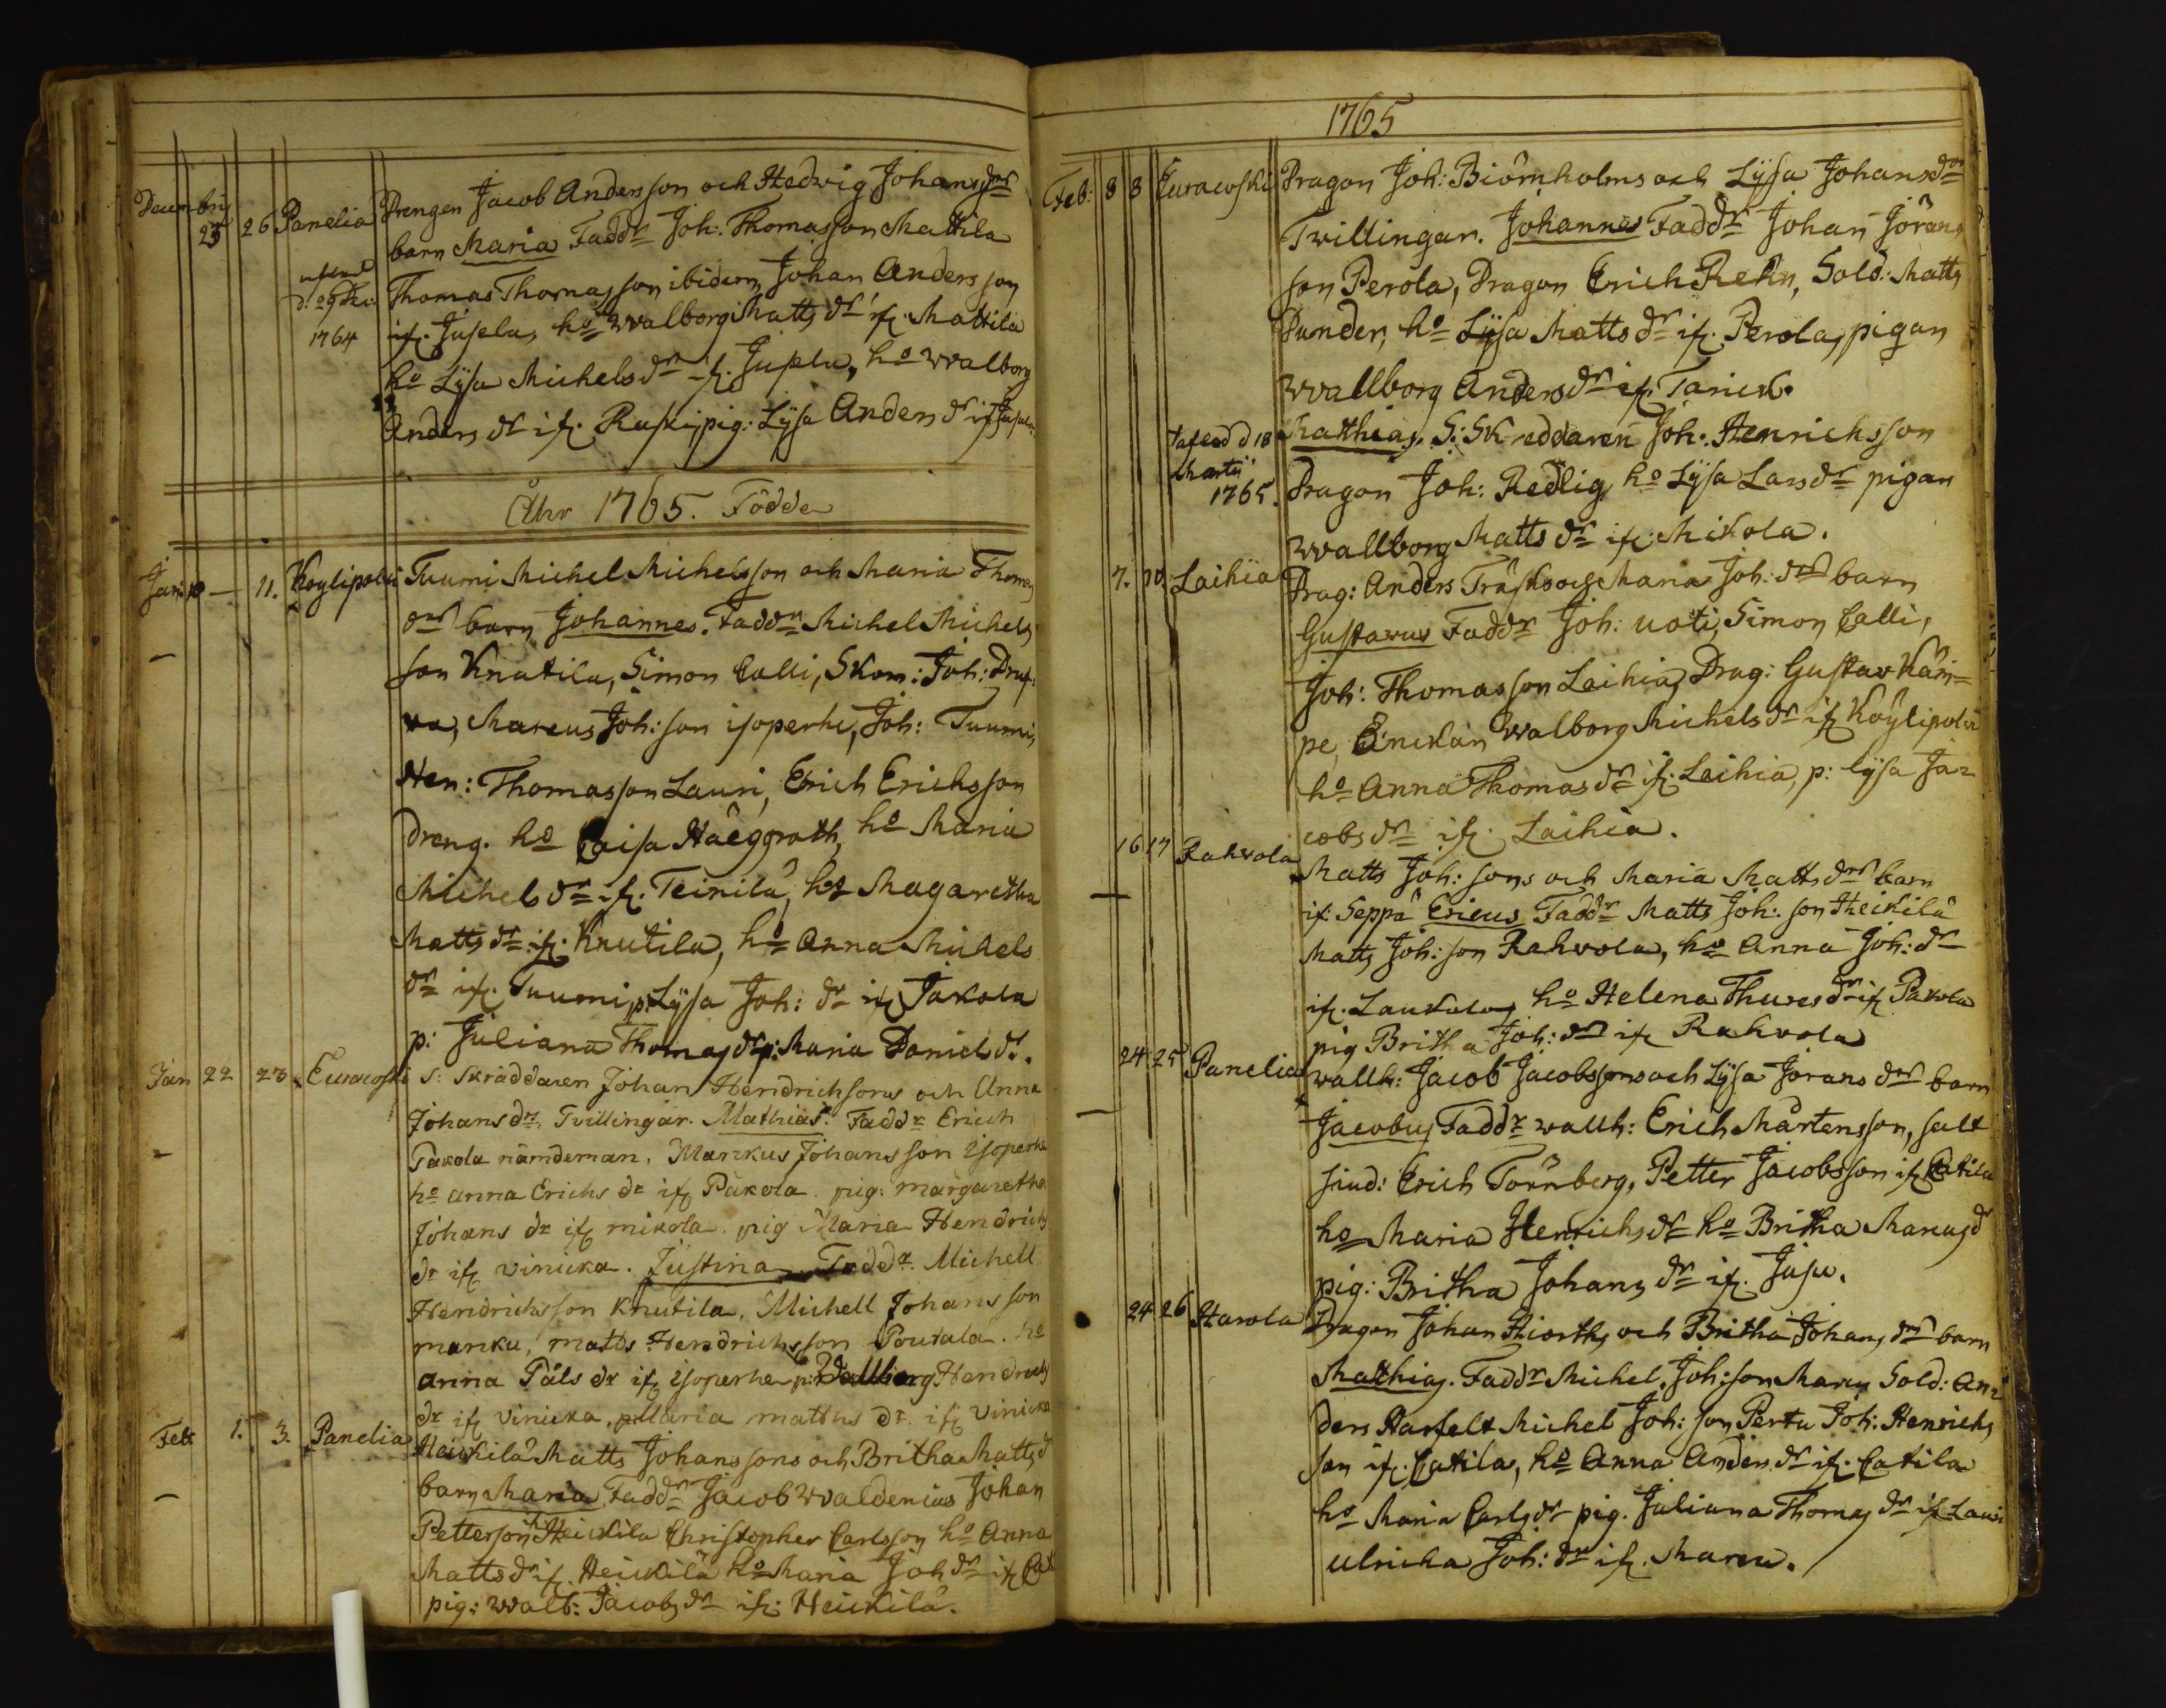 Decembris 25 26 Panelia Drengen Jacob Andersson och Hedwig Johansdrs
barn Maria Faddr Joh: Thomasson Mattila
Thomas Thomasson ibidem, Johan Andersson
d: 29 1764
if. Jusela, ho Walborg Matts dr if. Mattila
ho Lysa Michels dr if. Jusela, ho Walborg
Anders dr if. Ruski, pig: Lysa Anders dr if Jusela
Åhr 1765. Födde
Jan: 10 — 11. Köylipolvi Tuumi Michel Michelsson och Maria Thomas
drs barn Johannes. Faddr Michel Michels
son Knutila, Simon Calli, Skom: Joh:
Marcus Joh: son isoperhe, Joh: Tuumi,
Hen: Thomasson Lauri, Erich Erichsson
Dreng. ho Caisa Häggroth, ho Maria
Michels dr if. Teinilä, ho Magaretha
Matts dr if. Knutila, ho Anna Michels
dr if. Tuumi, p. Lysa Joh: dr if Jakola
p: Juliana Thomas dr p: Maria Daniels dr.
Jan 22 23 Euracoski S: Skräddaren Johan Hendrichsons och Anna
Johans dr. Tvillingar. Mathias. Faddr Erich
Pakola nämdeman, Markus Johansson Isoperhe
ho anna Erichs dr if Pakola. pig: margaretha
Johans dr if mikola. pig Maria Hendrichs
dr if vinicka. Justina Faddr. Michell
Hendrichsson Knutila, Michell Johansson
marcku, matts Hendrichsson Poukala. ho
anna Påls dr if isoperhe p: Wallborg Hendrichs
dr if vinicka, p. Maria matths dr. if vinicka
Feb 1. 3. Panelia Heickilä Matts Johanssons och Britha Matts d
barn Maria, Faddr Jacob Waldenius Johan
Petterson Heickila Christopher Carlsson ho Anna
Matts dr if. Heickilä ho Maria Joh dr if
pig: Walb: Jacobs dr if: Heickilä.
1765
Feb: 8 8 Euracoski Dragon Joh: Biörnholms och Lysa Johansdrs
Tvillingar. Johannes Faddr Johan Jörans
son Perola, Dragon Erich Rehn, Sold: Matts
Dunder, ho Lysa Matts dr if. Perola, pigan
Wallborg Anders dr if. Tanick.
d 18 Martii 1765.
Matthias. S: Skreddaren Joh: Henrichsson
Dragon Joh: Redlig, ho Lysa Lars dr pigan
Wallborg Matts dr if. Mikola.
7. 10 Laihia Drag: Anders Träsk och Maria Joh: drs barn
Gustavus Faddr Joh: uoti, Simon Calli,
Joh: Thomasson Laihia, Drag: Gustav Käm=
pe, Enckan Walborg Michels dr if Köylipolvi
ho Anna Thomas dr if. Laihia, p: lysa Ja=
cobs dr if. Laihia.
16 17 Rahvola Matts Joh: sons och Maria Matts drs barn
if: Seppä Ericus Faddr Matts Joh: son Heikilä
Matts Joh: son Rahvola, ho Anna Joh: dr
if. Laukola, ho Helena Thures dr if Pakola
pig Britha Joh: dr if Rahvola
24 25 Panelia wallh: Jacob Jacobssons och Lysa Jörans drs barn
Jacobus Faddr wallh: Erich Mårtensson,
Erich Törnberg, Petter Jacobsson if Catila
ho Maria Henrichs dr ho Britha Marcus d
pig: Britha Johans dr if. Juju.
24 26 Harola Dragon Johan Hiorths och Britha Johans drs barn
Matthias. Faddr Michel Joh: son Marcu Sold: An=
ders Harfelt Michel Joh: son Pertu Joh: Henrichs
son if. Catila, ho Anna Anders dr if. Catila
ho Maria Carls dr pig. Juliana Thomas dr if Lauri
ulricha Joh: dr if. Marcu.